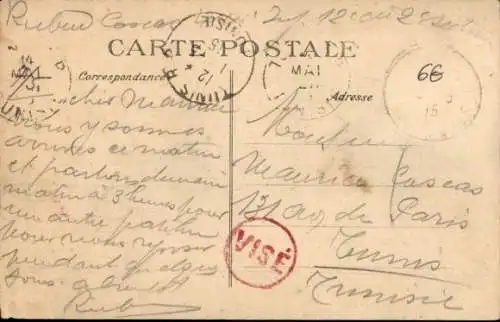 Ruben Cascas
CARTE POSTALE
Correspondance
Adresse
6€
TUNIS R.P.
12
MAI
15
cher Maurice
Nous y sommes
arrivés ce matin
et partons demain
matin à 3 heures pour
un autre patelin
pour nous reposer
pendant quelques
jours
Rub
Monsieur
Maurice Cascas
13 Av. de Paris
Tunis
Tunisie
VISÉ